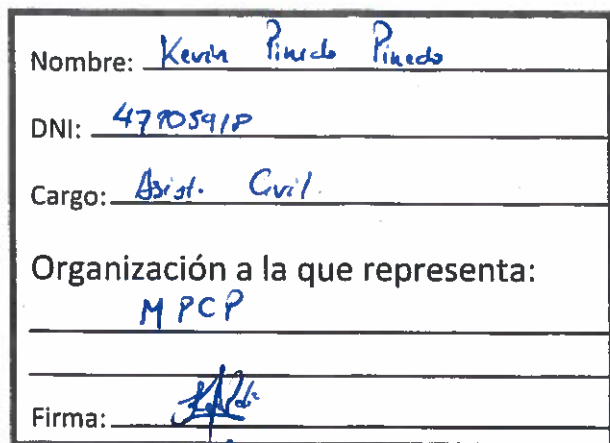 Nombre: Kevin Pinedo Pinedo
DNI:
Cargo: Asist. Civil.
Organización a la que representa:
MPCP
Firma: